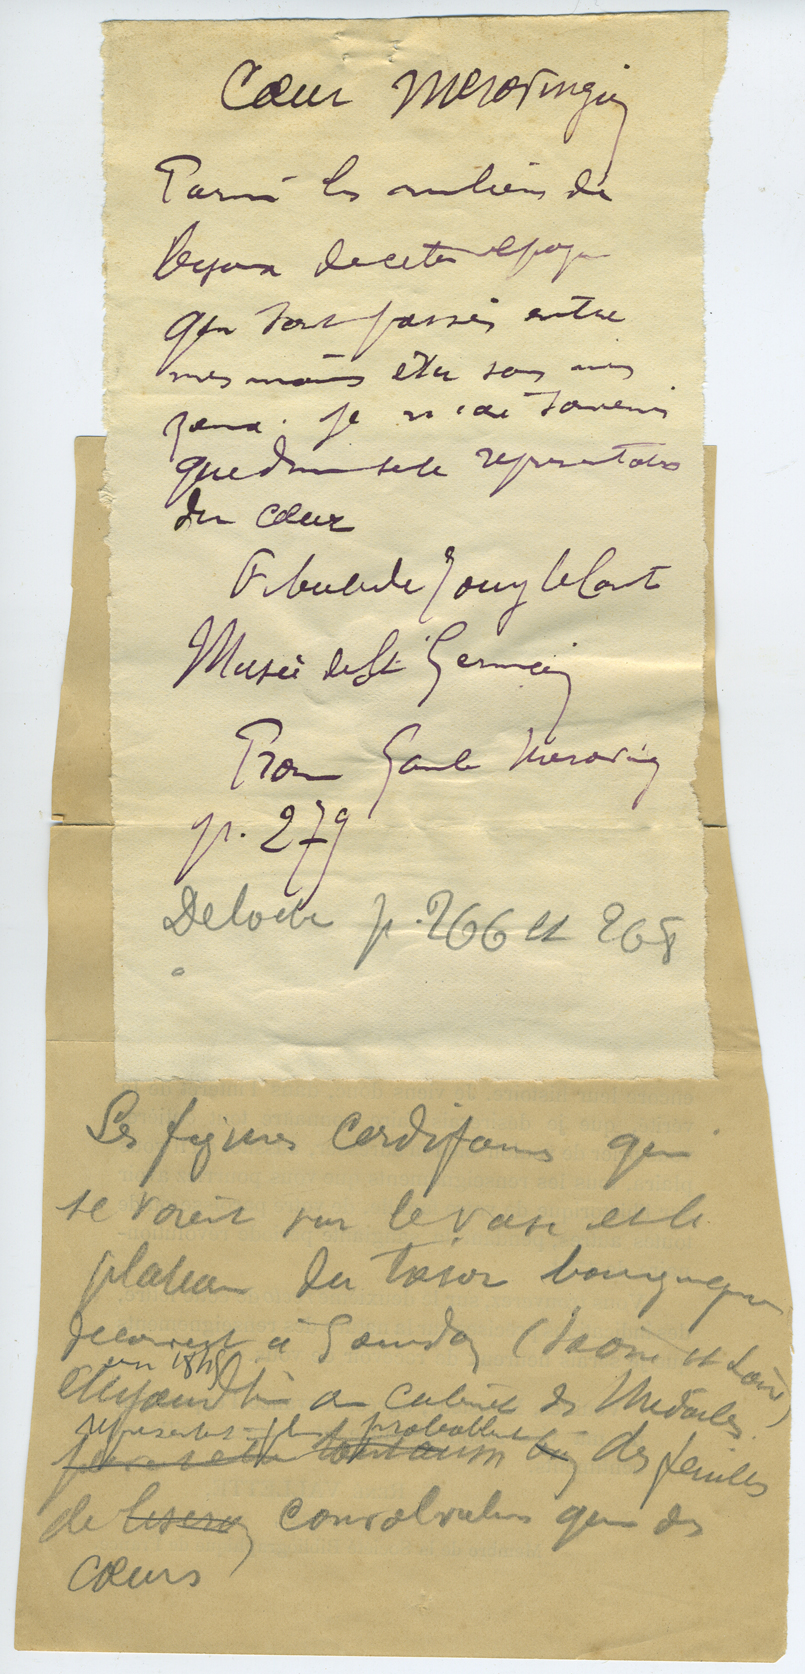 Cœur Merovingien
Parmi les milliers de
bijoux de cette epoque
qui sont passés entre
mes mains et sous mes
yeux. Je n'ai souvenir
que d'une seule representation
du cœur
Fibule de Jouy le Comte
Musée de St Germain
Prou Gaule Meroving
p. 279
Deloche p. 266 et 268
Les figures cordiformes qui
se voient sur le vase et le
plateau du tresor
decouvert à Gourdon (Saone et Loire)
en 1845
et aujourd'hui au cabinet des Medailles
representent plus probablement
des feuilles
de liseron convolvulus que des
cœurs